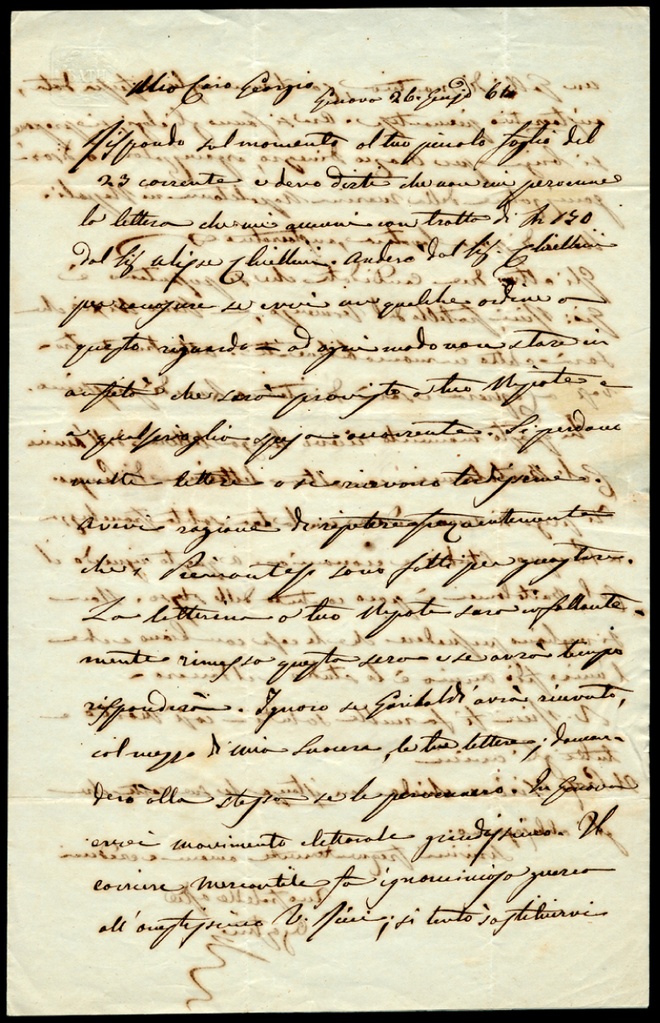 Mio Caro Giorgio
Genova 26. Giug.º 64
Rispondo sul momento al tuo piccolo foglio del
23 corrente e devo dirti che non mi pervenne
la lettera che mi annuni con tratta di 130
dal Sig. Ulisse Chiellini. Andero dal Sig. Chiellini
per se evvi in qualche ordine a
questo riguardo = ad ogni modo non stare in
che sarà provvisto a tuo Nipote a
spesa occorrente. Si perdono
molte lettere o si ricevono
avevi ragione di ripetere frequentemente
che i Piemontesi sono fatti per guastare.
La letterina a tuo Nipote sarà infallante-
mente rimessa questa sera e se avrà tempo
risponderà. Ignoro se Garibaldi avrà ricevuto,
col mezzo di mia Suocera, le tue lettere; doman-
derò alla stessa se le pervennero. In Genova
evvi movimento elettorale grandissimo. Il
corriere Mercantile fa ignominiosa guerra
all'onestissimo V. Ricci, si tentò sostituirvi